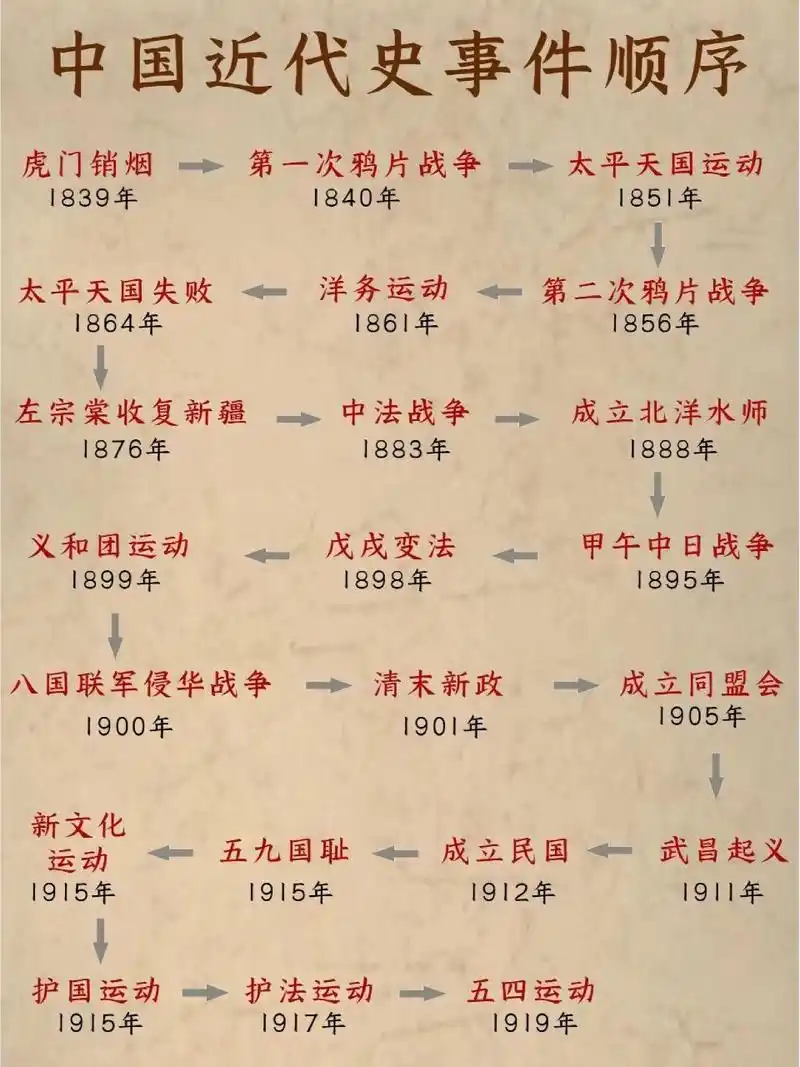 中国近代史事件顺序
虎门销烟
1839年
第一次鸦片战争
1840年
太平天国运动
1851年
第二次鸦片战争
1856年
洋务运动
1861年
太平天国失败
1864年
左宗棠收复新疆
1876年
中法战争
1883年
成立北洋水师
1888年
甲午中日战争
1895年
戊戌变法
1898年
义和团运动
1899年
八国联军侵华战争
1900年
清末新政
1901年
成立同盟会
1905年
武昌起义
1911年
成立民国
1912年
五九国耻
1915年
新文化
运动
1915年
护国运动
1915年
护法运动
1917年
五四运动
1919年